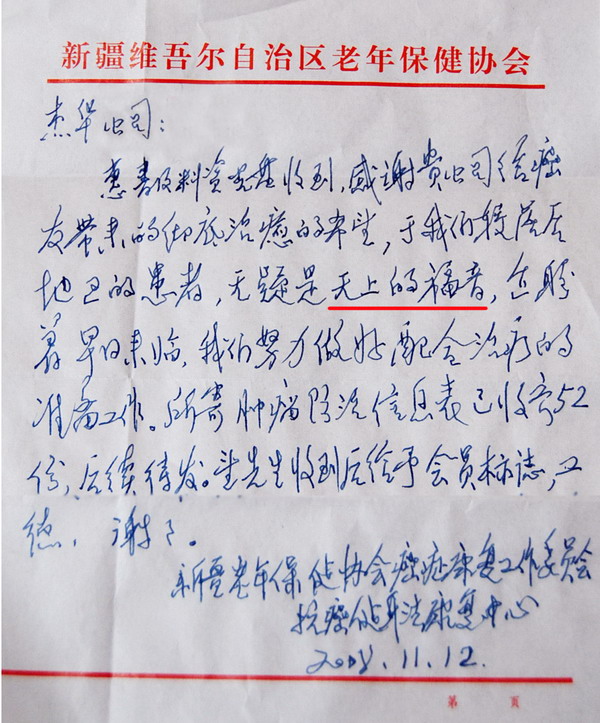 新疆维吾尔自治区老年保健协会
杰华公司：
惠书及料资光盘收到，感谢贵公司给癌
友带来的彻底治癒的希望，于我们较落后
地区的患者，无疑是无上的福音，企盼
着早日来临，我们努力做好配合治疗的
准备工作。所寄肿瘤防治信息表已收寄52
份，后续待发。望先生收到后给予会员标志，
谢了。
新疆老年保健协会癌症康复工作委员会
抗癌健身法康复中心
2008.11.12.
第 页